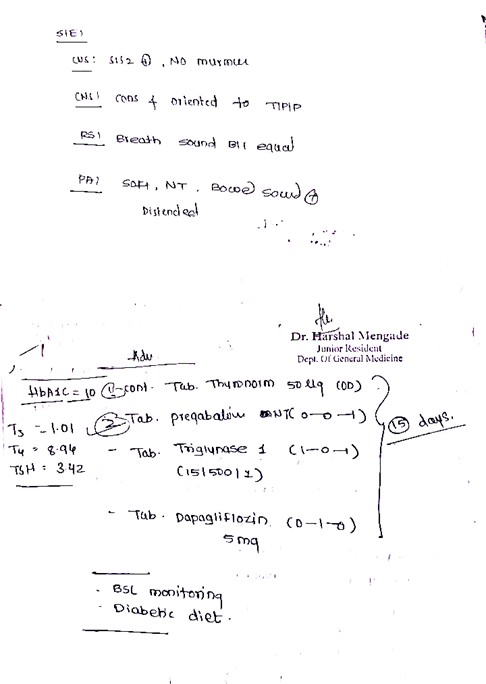 S/E:
CVS: S1S2 ⊕, No murmur
CNS: cons & oriented to T/P/P
RS: Breath sound B/L equal
PA: Soft, NT. Bowel sound ⊕
Distended
Dr. Harshal Mengade
Junior Resident
Dept. Of General Medicine
Adv
HbA1C = 10 ① - cont. Tab. Thyronorm 50 ug (OD)
T3 - 1.01 ② Tab. pregabalin NT (0-0-1)
T4 = 8.94 - Tab. Triglynase 1 (1-0-1)
TSH = 3.42 (15/500/1)
15 days.
- Tab. Dapagliflozin (0-1-0)
5 mg
- BSL monitoring
- Diabetic diet.